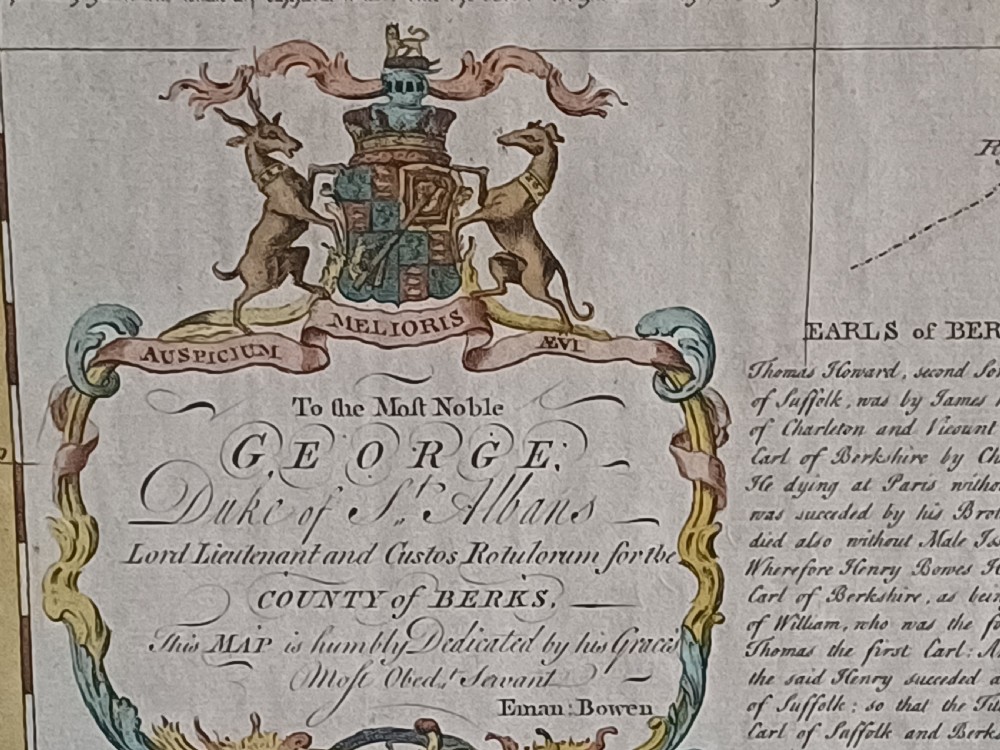 AUSPICIUM MELIORIS ÆVI
To the Moſt Noble
GEORGE,
Duke of St. Albans
Lord Lieutenant and Custos Rotulorum for the
COUNTY of BERKS,
This MAP is humbly Dedicated by his Graces
Moſt Obedt. Servant
Eman: Bowen
EARLS of BER
Thomas Howard, second Son
of Suffolk, was by James
of Charleton and Vicount
Earl of Berkshire by Ch
He dying at Paris witho
was succeded by his Bro
died also without Male Iss
Wherefore Henry Bowes H
Earl of Berkshire, as bein
of William, who was the
Thomas the first Earl: A
the said Henry succeded a
of Suffolk; so that the Tit
Earl of Suffolk and Berks